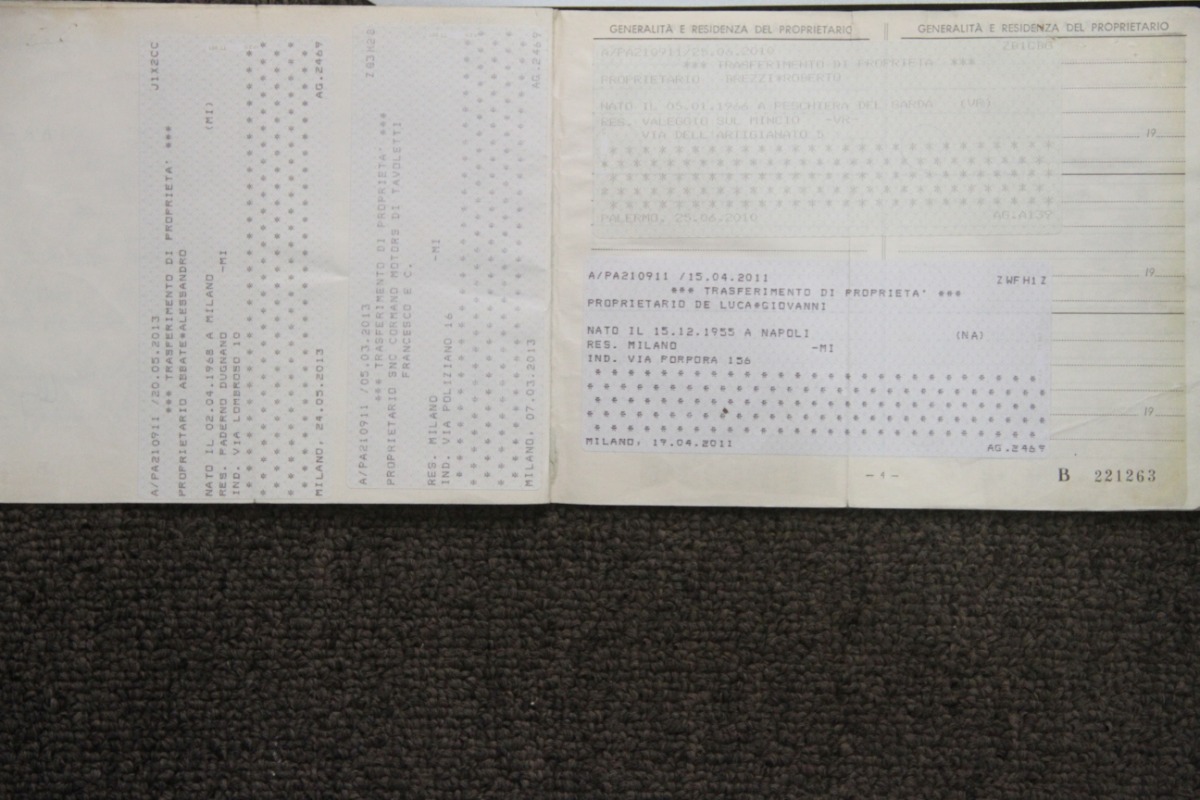 A/PA210911 /20.05.2013 J1X2CC
*** TRASFERIMENTO DI PROPRIETA' ***
PROPRIETARIO ABBATE*ALESSANDRO
NATO IL 02.04.1968 A MILANO (MI)
RES. PADERNO DUGNANO -MI
IND. VIA LOMBROSO 10
MILANO, 24.05.2013 AG.2469
A/PA210911 /05.03.2013
*** TRASFERIMENTO DI PROPRIETA' ***
PROPRIETARIO SNC CORMANO MOTORS DI TAVOLETTI
FRANCESCO E C.
RES. MILANO -MI
IND. VIA POLIZIANO 16
MILANO, 07.03.2013 AG.2469
GENERALITÀ E RESIDENZA DEL PROPRIETARIO
GENERALITÀ E RESIDENZA DEL PROPRIETARIO
A/PA210911/25.06.2010
*** TRASFERIMENTO DI PROPRIETA' ***
PROPRIETARIO BREZZI*ROBERTO
NATO IL 05.01.1966 A PESCHIERA DEL GARDA (VR)
RES. VALEGGIO SUL MINCIO -VR-
VIA DELL'ARTIGIANATO 5
PALERMO, 25.06.2010 AG:A139
19
A/PA210911 /15.04.2011 ZWFH1Z
*** TRASFERIMENTO DI PROPRIETA' ***
PROPRIETARIO DE LUCA*GIOVANNI
NATO IL 15.12.1955 A NAPOLI (NA)
RES. MILANO -MI
IND. VIA PORPORA 156
MILANO, 19.04.2011 AG.2469
19
19
- 4 -
B 221263